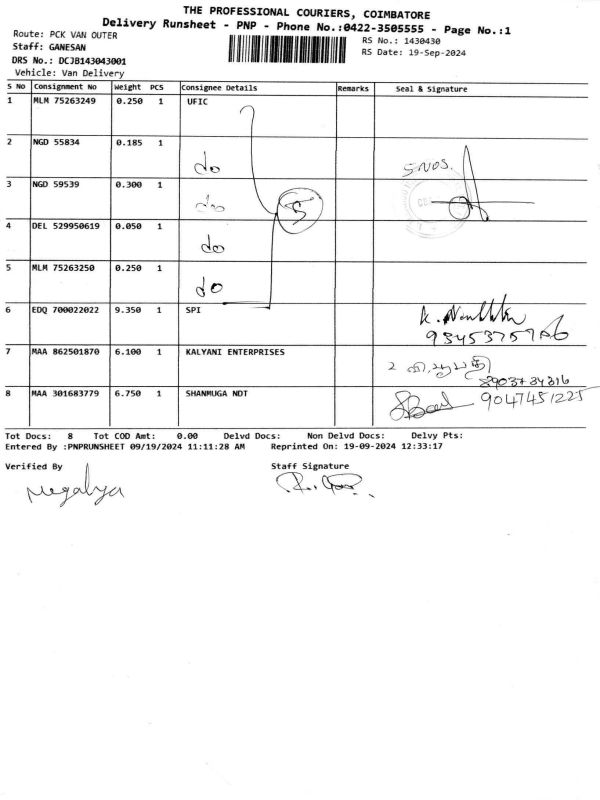 THE PROFESSIONAL COURIERS, COIMBATORE
Delivery Runsheet - PNP - Phone No.:0422-3505555 - Page No.:1
Route: PCK VAN OUTER
RS No.: 1430430
Staff: GANESAN
RS Date: 19-Sep-2024
DRS No.: DCJB143043001
Vehicle: Van Delivery
S No Consignment No Weight PCS Consignee Details Remarks Seal & Signature
1 MLM 75263249 0.250 1 UFIC
2 NGD 55834 0.185 1
do 5 NOS.
3 NGD 59539 0.300 1
do 5
4 DEL 529950619 0.050 1
do
5 MLM 75263250 0.250 1
do
6 EDQ 700022022 9.350 1 SPI
7 MAA 862501870 6.100 1 KALYANI ENTERPRISES
8903734316
8 MAA 301683779 6.750 1 SHANMUGA NDT
9047451225
Tot Docs: 8 Tot COD Amt: 0.00 Delvd Docs: Non Delvd Docs: Delvy Pts:
Entered By :PNPRUNSHEET 09/19/2024 11:11:28 AM Reprinted On: 19-09-2024 12:33:17
Verified By Staff Signature
Megalya